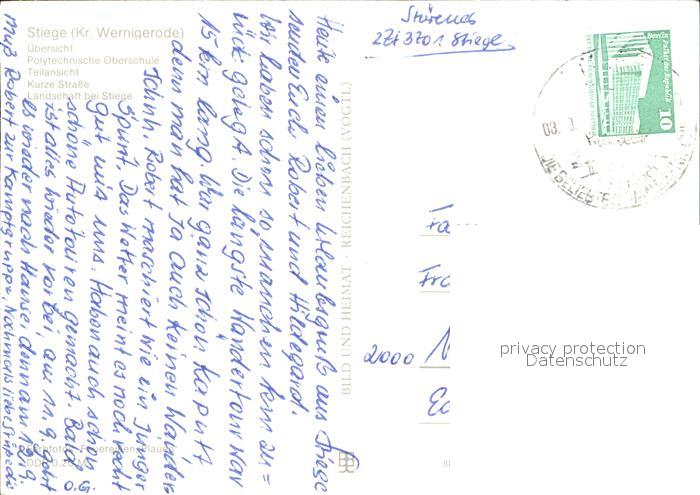 Stiege (Kr. Wernigerode)
Übersicht
Polytechnische Oberschule
Teilansicht
Kurze Straße
Landschaft bei Stiege
2Zi 3701 Stiege
Heute einen lieben Urlaubsgruß aus Stiege
senden Euch Robert und Hildegard.
Wir haben schon so manchen km zu=
rück gelegt. Die längste Wandertour war
15 km lang. War ganz schon kaputt,
denn man hat ja auch keinen Wander-
schuh. Robert marschiert wie ein junger
Spunt. Das Wetter meint es noch recht
gut mit uns. Haben auch schon
schöne Autotouren gemacht. Bald
ist alles wieder vorbei, am 11.9. geht
es wieder nach Hause, denn am 12.9.
muß Robert zur Kampfgruppe. Nochmals liebe Grüße die
O.G.
BILD UND HEIMAT · REICHENBACH (VOGTL)
Berlin
Palast der Republik
10
DDR
08.
Fa
Fra
2000 N
privacy protection
Datenschutz